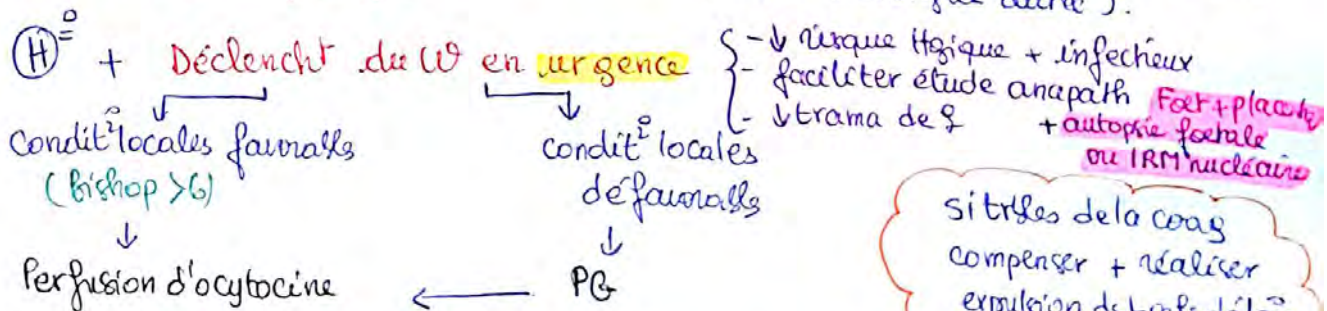 (H)° + Déclencht du W en urgence
- ↓ risque Hgique + infectieux
- faciliter étude anapath Foet + placenta
- ↓ trauma de ♀ + autopsie foetale
ou IRM nucléaire
condit° locales favorables
(Bishop >6)
↓
Perfusion d'ocytocine
condit° locales
défavorables
↓
← PG
si trbles de la coag
compenser + réaliser
expulsion